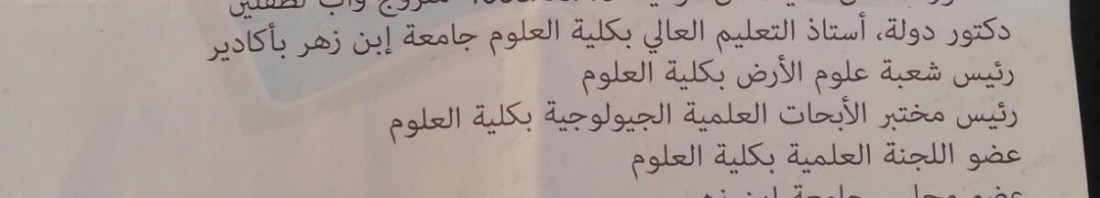 متزوج وأب لطفلين
دكتور دولة، أستاذ التعليم العالي بكلية العلوم جامعة إبن زهر بأكادير
رئيس شعبة علوم الأرض بكلية العلوم
رئيس مختبر الأبحات العلمية الجيولوجية بكلية العلوم
عضو اللجنة العلمية بكلية العلوم